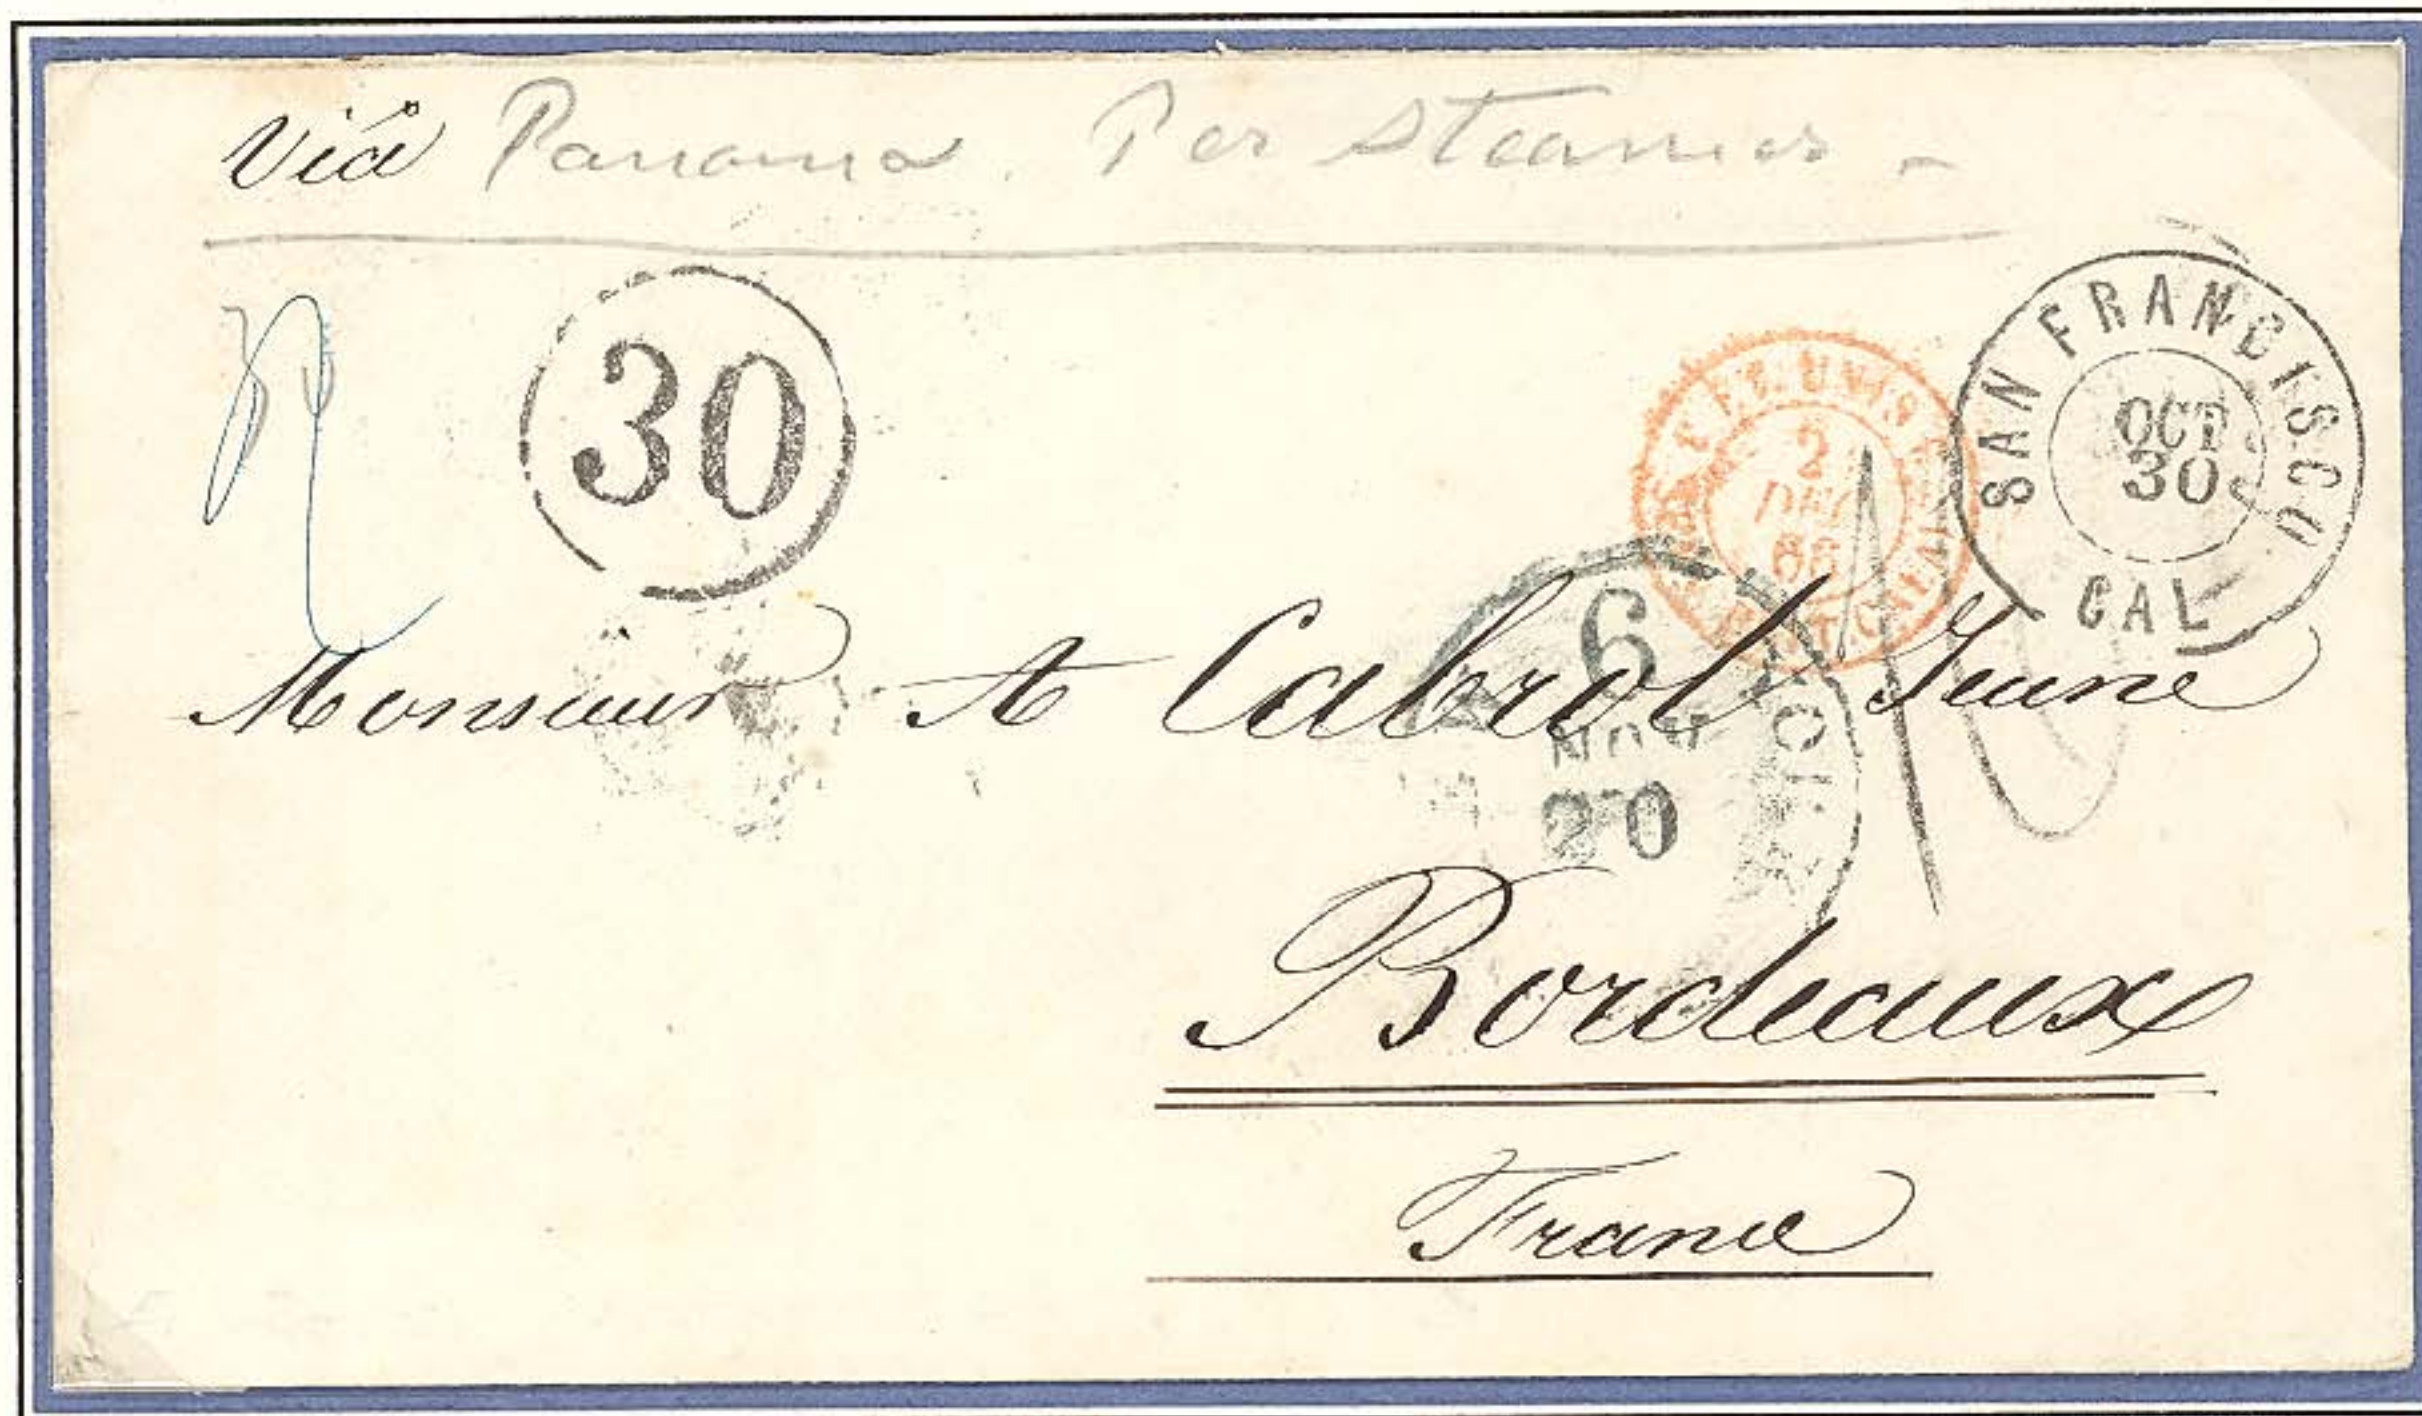 Via Panama. Per Steamer -
30
SAN FRANCISCO
OCT
30
CAL
ET. UNIS
2
DEC
CALAIS
6
NOV
20
YORK
10
Monsieur A Cabrol Jeune
Bordeaux
France